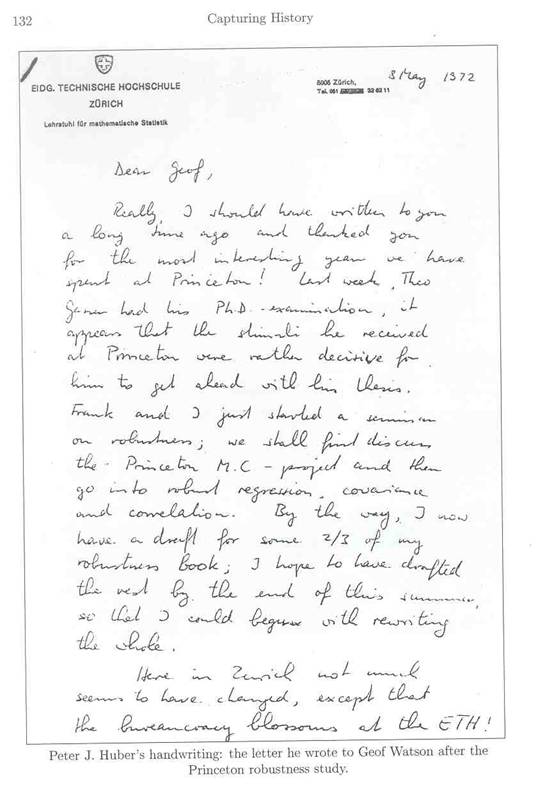 132
Capturing History
EIDG. TECHNISCHE HOCHSCHULE
ZÜRICH
Lehrstuhl für mathematische Statistik
8006 Zürich,
Tel. 051 32 62 11
8 May 1972
Dear Geof,
Really, I should have written to you
a long time ago and thanked you
for the most interesting year we have
spent at Princeton! Last week, Theo
Gasser had his Ph.D.-examination, it
appears that the stimuli he received
at Princeton were rather decisive for
him to get ahead with his thesis.
Frank and I just started a seminar
on robustness; we shall first discuss
the Princeton M.C-project and then
go into robust regression, covariance
and correlation. By the way, I now
have a draft for some 2/3 of my
robustness book; I hope to have drafted
the rest by the end of this summer,
so that I could begin with rewriting
the whole.
Here in Zurich not much
seems to have changed, except that
the bureaucracy blossoms at the ETH!
Peter J. Huber's handwriting: the letter he wrote to Geof Watson after the
Princeton robustness study.